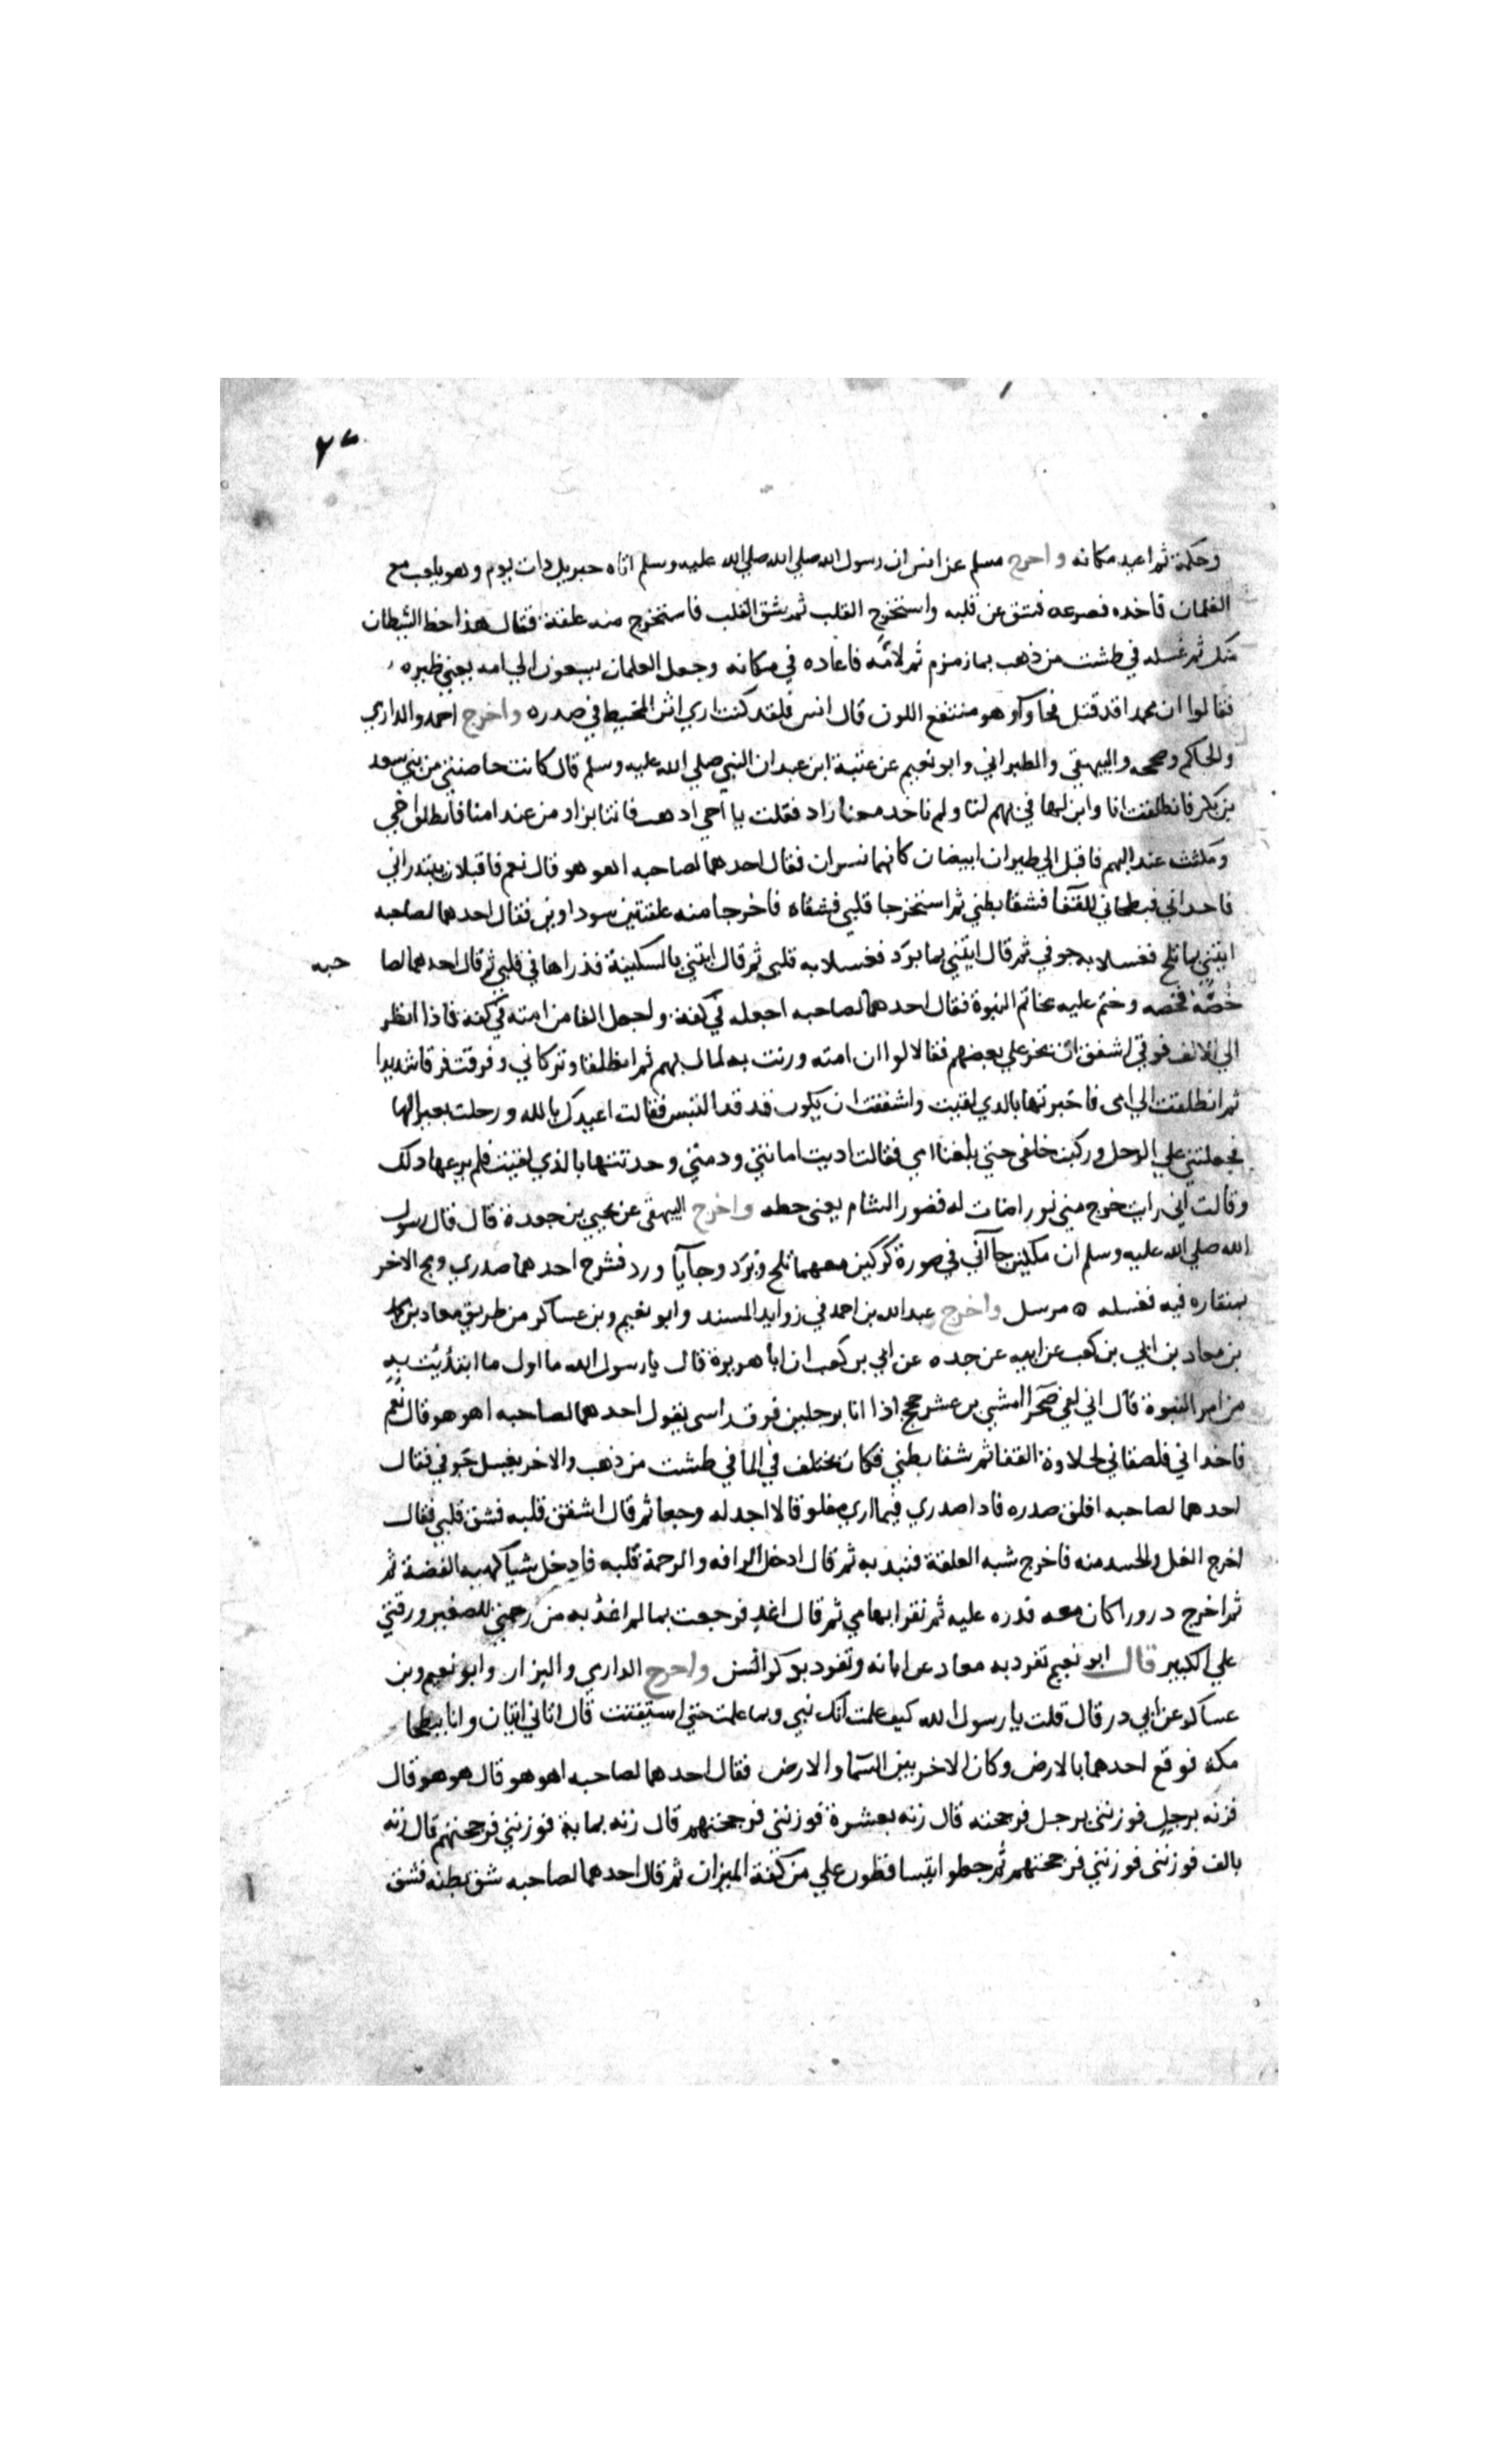 ٢٧
وحكمة ثم اعيد مكانه واخرج مسلم عن انس ان رسول الله صلي الله صلي الله عليه وسلم اتاه جبريل ذات يوم وهو يلعب مع
الغلمان فاخذه فصرعه فشق عن قلبه واستخرج القلب ثم شق القلب فاستخرج منه علقة فقال هذا حظ الشيطان
منك ثم غسله في طشت من ذهب بماز مزم ثم لامه فاعاده في مكانه وجعل الغلمان يسعون الي امه يعني ظيره
فقالوا ان محمدا قد قتل فجاوا وهو منتقع اللون قال انس فلقد كنت اري اثر المخيط في صدره واخرج احمد والداري
والحاكم وصححه والبيهقي والطبراني وابو نعيم عن عتبة ابن عبد ان النبي صلي الله عليه وسلم قال كانت حاضنتي من بني سعد
بن بكر فانطلقت انا وابن لها في بهم لنا ولم ناخد معنا زاد فقلت يا اخي اذهب فاتنا بزاد من عند امنا فانطلق اخي
ومكثت عند البهم فاقبل الي طيران ابيضان كانهما نسران فقال احدهما لصاحبه اهو هو قال نعم فاقبلا يبتدراني
فاخداني فبطحاني للقفا فشقا بطني ثم استخرجا قلبي فشقاه فاخرجا منه علقتين سوداوين فقال احدهما لصاحبه
ايتني بما ثلج فغسلا به جوفي ثم قال ايتني بما برد فغسلا به قلبي ثم قال ايتني بالسكينة فذراها في قلبي ثم قال احدهما لصا حبه
حصه فحصه وختم عليه بخاتم النبوة فقال احدهما لصاحبه اجعله في كفة واجعل الفا من امته في كفة فاذا انظر
الي الالف فوقي اشفق ان يخر علي بعضهم فقالا لو ان امته وزنت به لمال بهم ثم انطلقا وتركاني وفرقت فرقا شديدا
ثم انطلقت الي امي فاخبرتها بالذي لقيت واشفقت ان يكون قد التبس فقالت اعيدك بالله ورحلت بعيرا لها
فجعلتني علي الرحل وركبت خلفي حتي بلغنا امي فقالت اديت امانتي ودمتي وحدثتها بالذي لقيت فلم يرعها دلك
وقالت اني رايت خرج مني نور اضات له قصور الشام يعني حطه واخرج البيهقي عن يحيي بن جعدة قال قال رسول
الله صلي الله عليه وسلم ان ملكين جاآني في صورة كركين معهما ثلج وبرد وجآبا ورد فشرح احدهما صدري ومج الاخر
بمنقاره فيه فغسله ٥ مرسل واخرج عبد الله بن احمد في زوايد المسند وابو نعيم وبن عساكر من طريق معاد بن محمد
بن معاد بن ابي بن كعب عن ابيه عن جده عن ابي بن كعب ان ابا هريرة قال يا رسول الله ما اول ما ابتديت به
من امر النبوة قال اني لفي صحرا امشي بن عشر حجج اذا انا برجلين فوق راسي يقول احدهما لصاحبه اهو هو قال نعم
فاخداني فلصقاني لحلاوة القفا ثم شقا بطني فكان يختلف في الما في طشت من ذهب والاخر يغسل جوفي فقال
احدهما لصاحبه افلق صدره فادا صدري فيما اري مفلوقا لا اجد له وجعا ثم قال اشقق قلبه فشق قلبي فقال
اخرج الغل والحسد منه فاخرج شبه العلقة فنبد به ثم قال ادخل الرافه والرحمة قلبه فادخل شيا كهيه الفضة ثم
ثم اخرج درورا كان معه فدره عليه ثم نقر ابهامي ثم قال اغد فرجعت بما لم اغد به من رحمتي للصغير ورقتي
علي الكبير قال ابو نعيم تفرد به معاد عن ابائه وتفرد بذكر السن واخرج الداري والبزار وابو نعيم وبن
عساكر عن ابي در قال قلت يا رسول الله كيف علمت انك نبي وبما علمت حتي استيقنت قال اتاني اتيان وانا ببطحا
مكة فوقع احدهما بالارض وكان الاخر بين السما والارض فقال احدهما لصاحبه اهو هو قال هو هو قال
فزنه برجل فوزنني برجل فرجحته قال زنه بعشرة فوزنني فرجحتهم قال زنه بماية فوزنني فرجحتهم قال زنه
بالف فوزنني فوزنني فرجحتهم ثم جعلوا يتساقطون علي من كفة الميزان ثم قال احدهما لصاحبه شق بطنه فشق